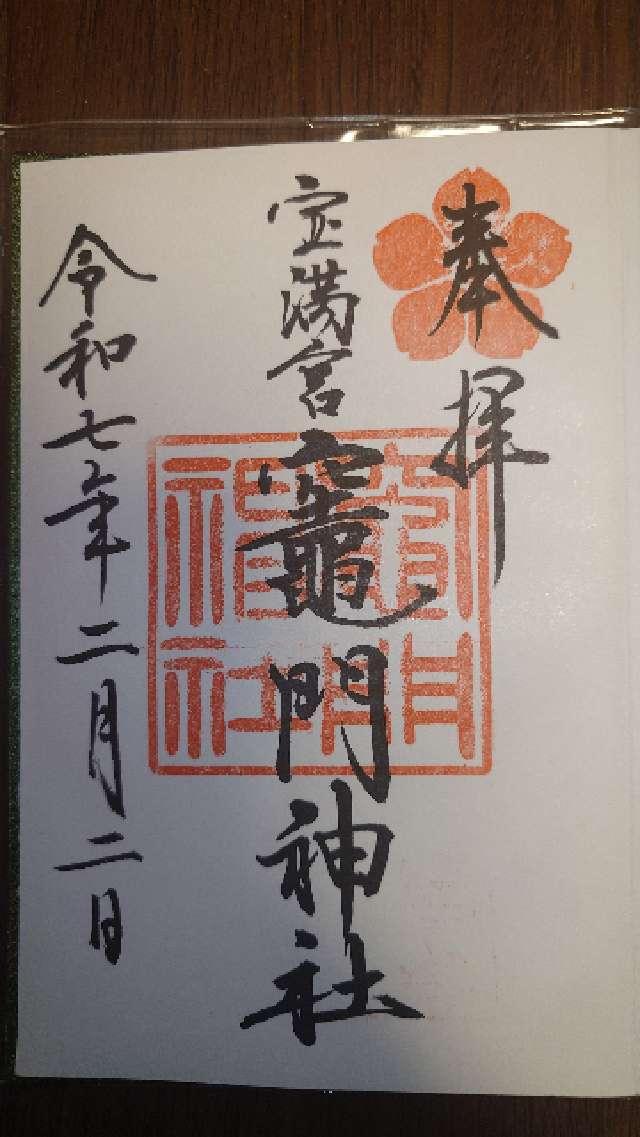 奉拝
宝満宮竈門神社
竈門神社
令和七年二月二日